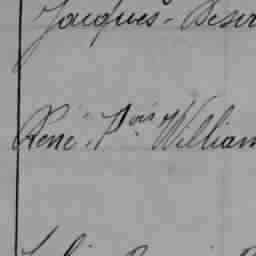 Jacques-Désir
René. Fois William